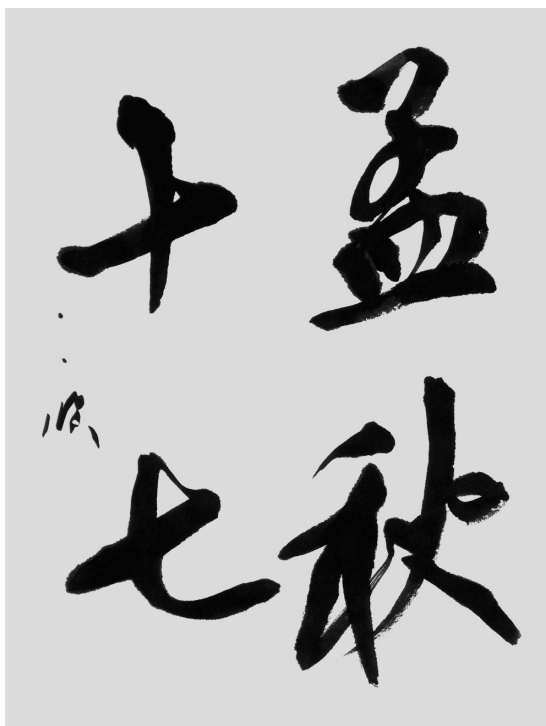 孟秋
十七